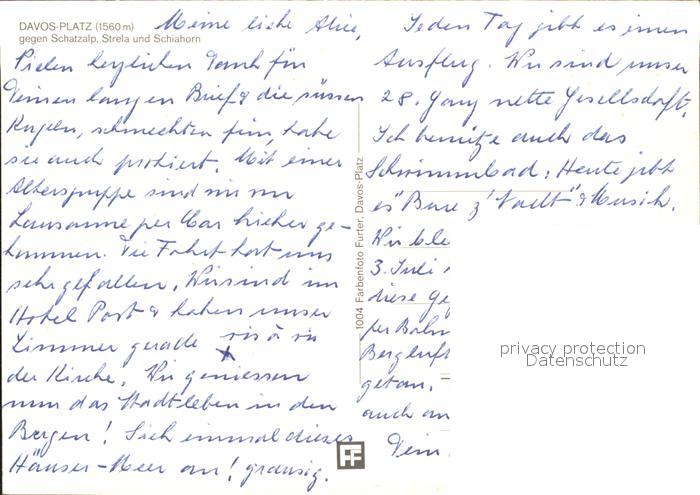 DAVOS-PLATZ (1560 m)
gegen Schatzalp, Strela und Schiahorn
Meine liebe Alice,
Vielen herzlichen Dank für
Deinen langen Brief & die süssen
Kugeln, schmeckten fein, habe
sie auch probiert. Mit einer
Altersgruppe sind wir von
Lausanne per Car hieher ge-
kommen. Die Fahrt hat uns
sehr gefallen. Wir sind im
Hotel Post & haben unser
Zimmer gerade vis à vis
der Kirche. Wir geniessen
nun das Stadtleben in den
Bergen! Sieh einmal dieses
Häuser-Meer an! grausig.
1004 Farbenfoto Furter, Davos-Platz
FF
Jeden Tag gibt es einen
Ausflug. Wir sind unser
28. Ganz nette Gesellschaft.
Ich benütze auch das
Schwimmbad. Heute gibt
es "Bure z'
& Musik.
Wir ble
3. Juli
diese Ge
per Bahn
Bergluft
getan.
auch an
Dein
privacy protection
Datenschutz